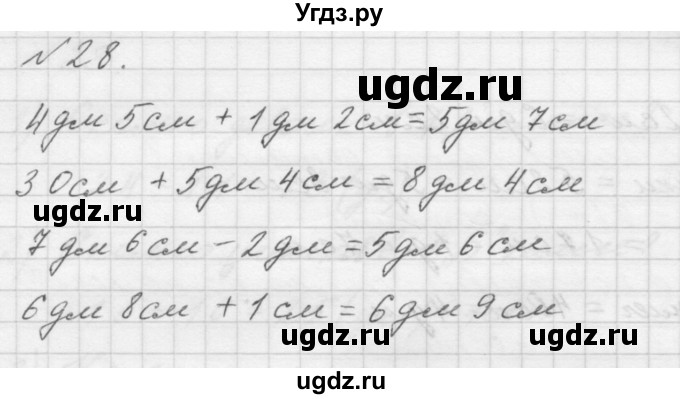 Угдз.ру
№28.
ugdz.ru
4дм 5см + 1дм 2см = 5дм 7см
30см + 5дм 4см = 8дм 4см
ugdz.ru
7дм 6см - 2дм = 5дм 6см
6дм 8см + 1см = 6дм 9см
ugdz.ru ugdz.ru
ugdz.ru